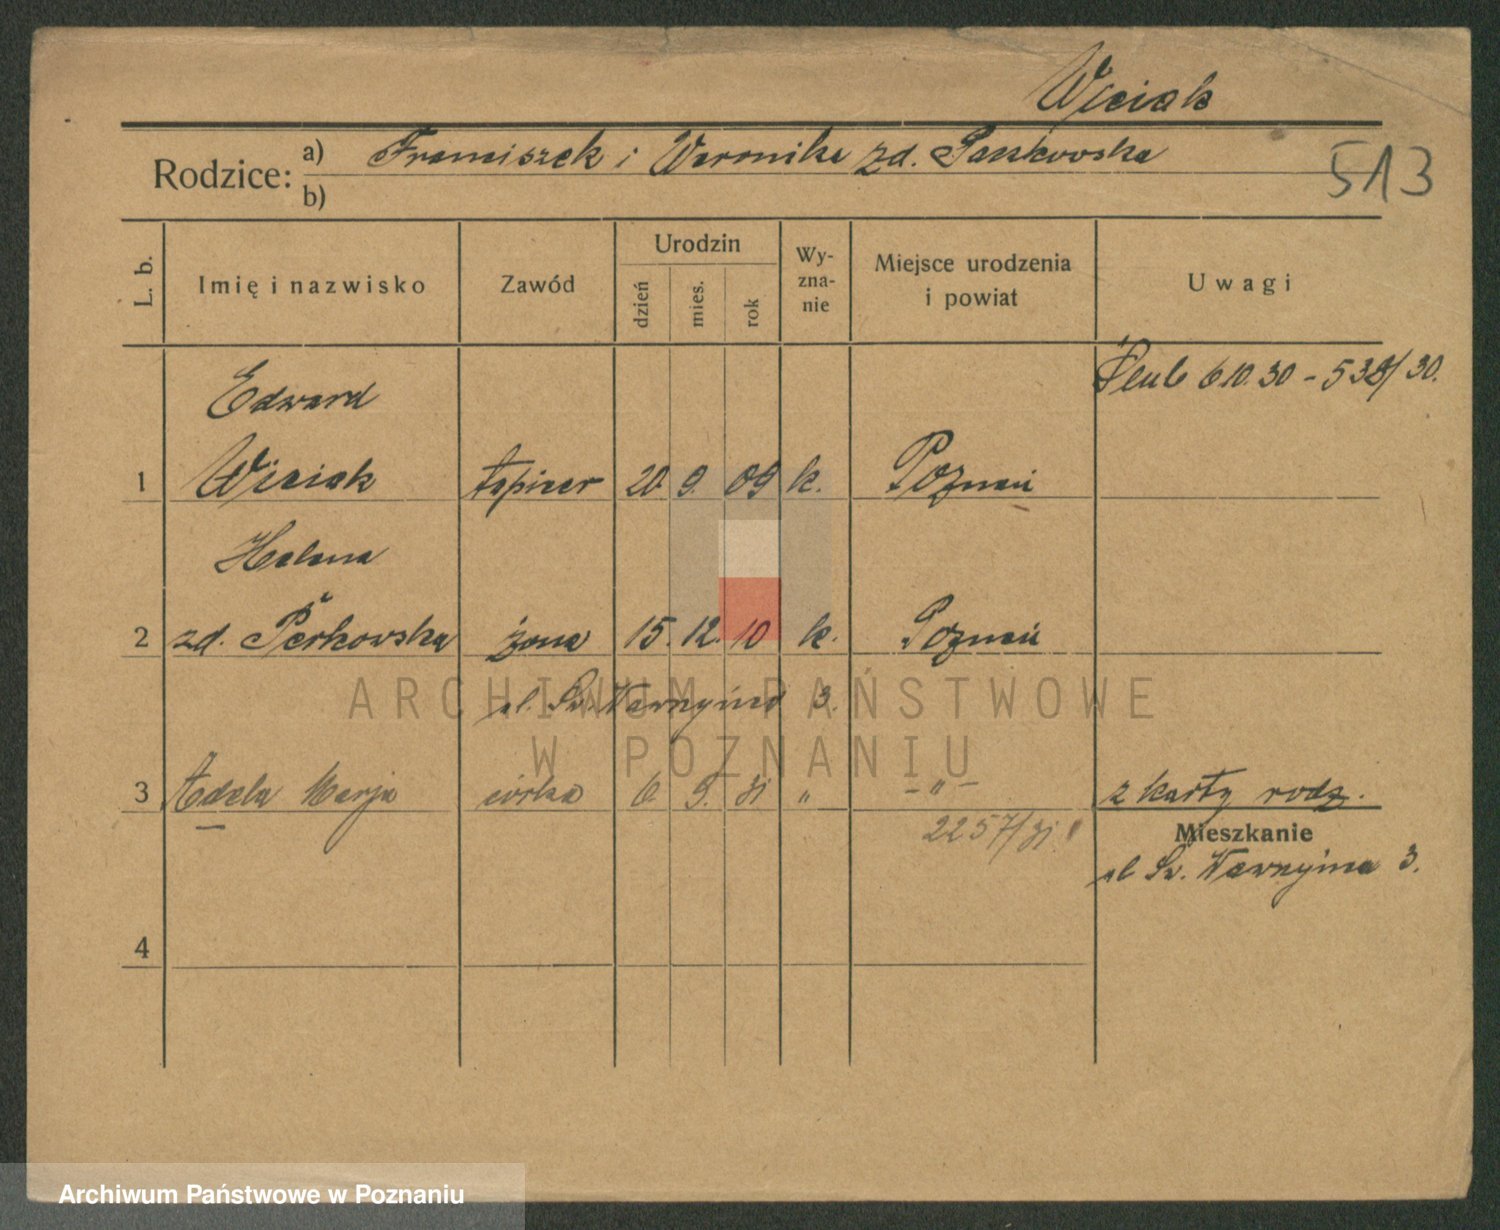 Wiciak
Rodzice: a) Franciszek i Weronika zd. Pankowska
b)
513
L. b. Imię i nazwisko Zawód Urodzin dzień mies. rok Wy-zna-nie Miejsce urodzenia i powiat Uwagi
Edward
Ślub 6.10.30 - 532/30.
1 Wiciak tapicer 20. 9. 09 k. Poznań
Helena
2 zd. Perkowska żona 15. 12. 10 k. Poznań
ul. Św. Wawrzyńca 3.
3 Adela Marja córka 6. 9. 31 " - " - z karty rodz.
2257/31.
Mieszkanie
ul Św. Wawrzyńca 3.
4
ARCHIWUM PAŃSTWOWE
W POZNANIU
Archiwum Państwowe w Poznaniu